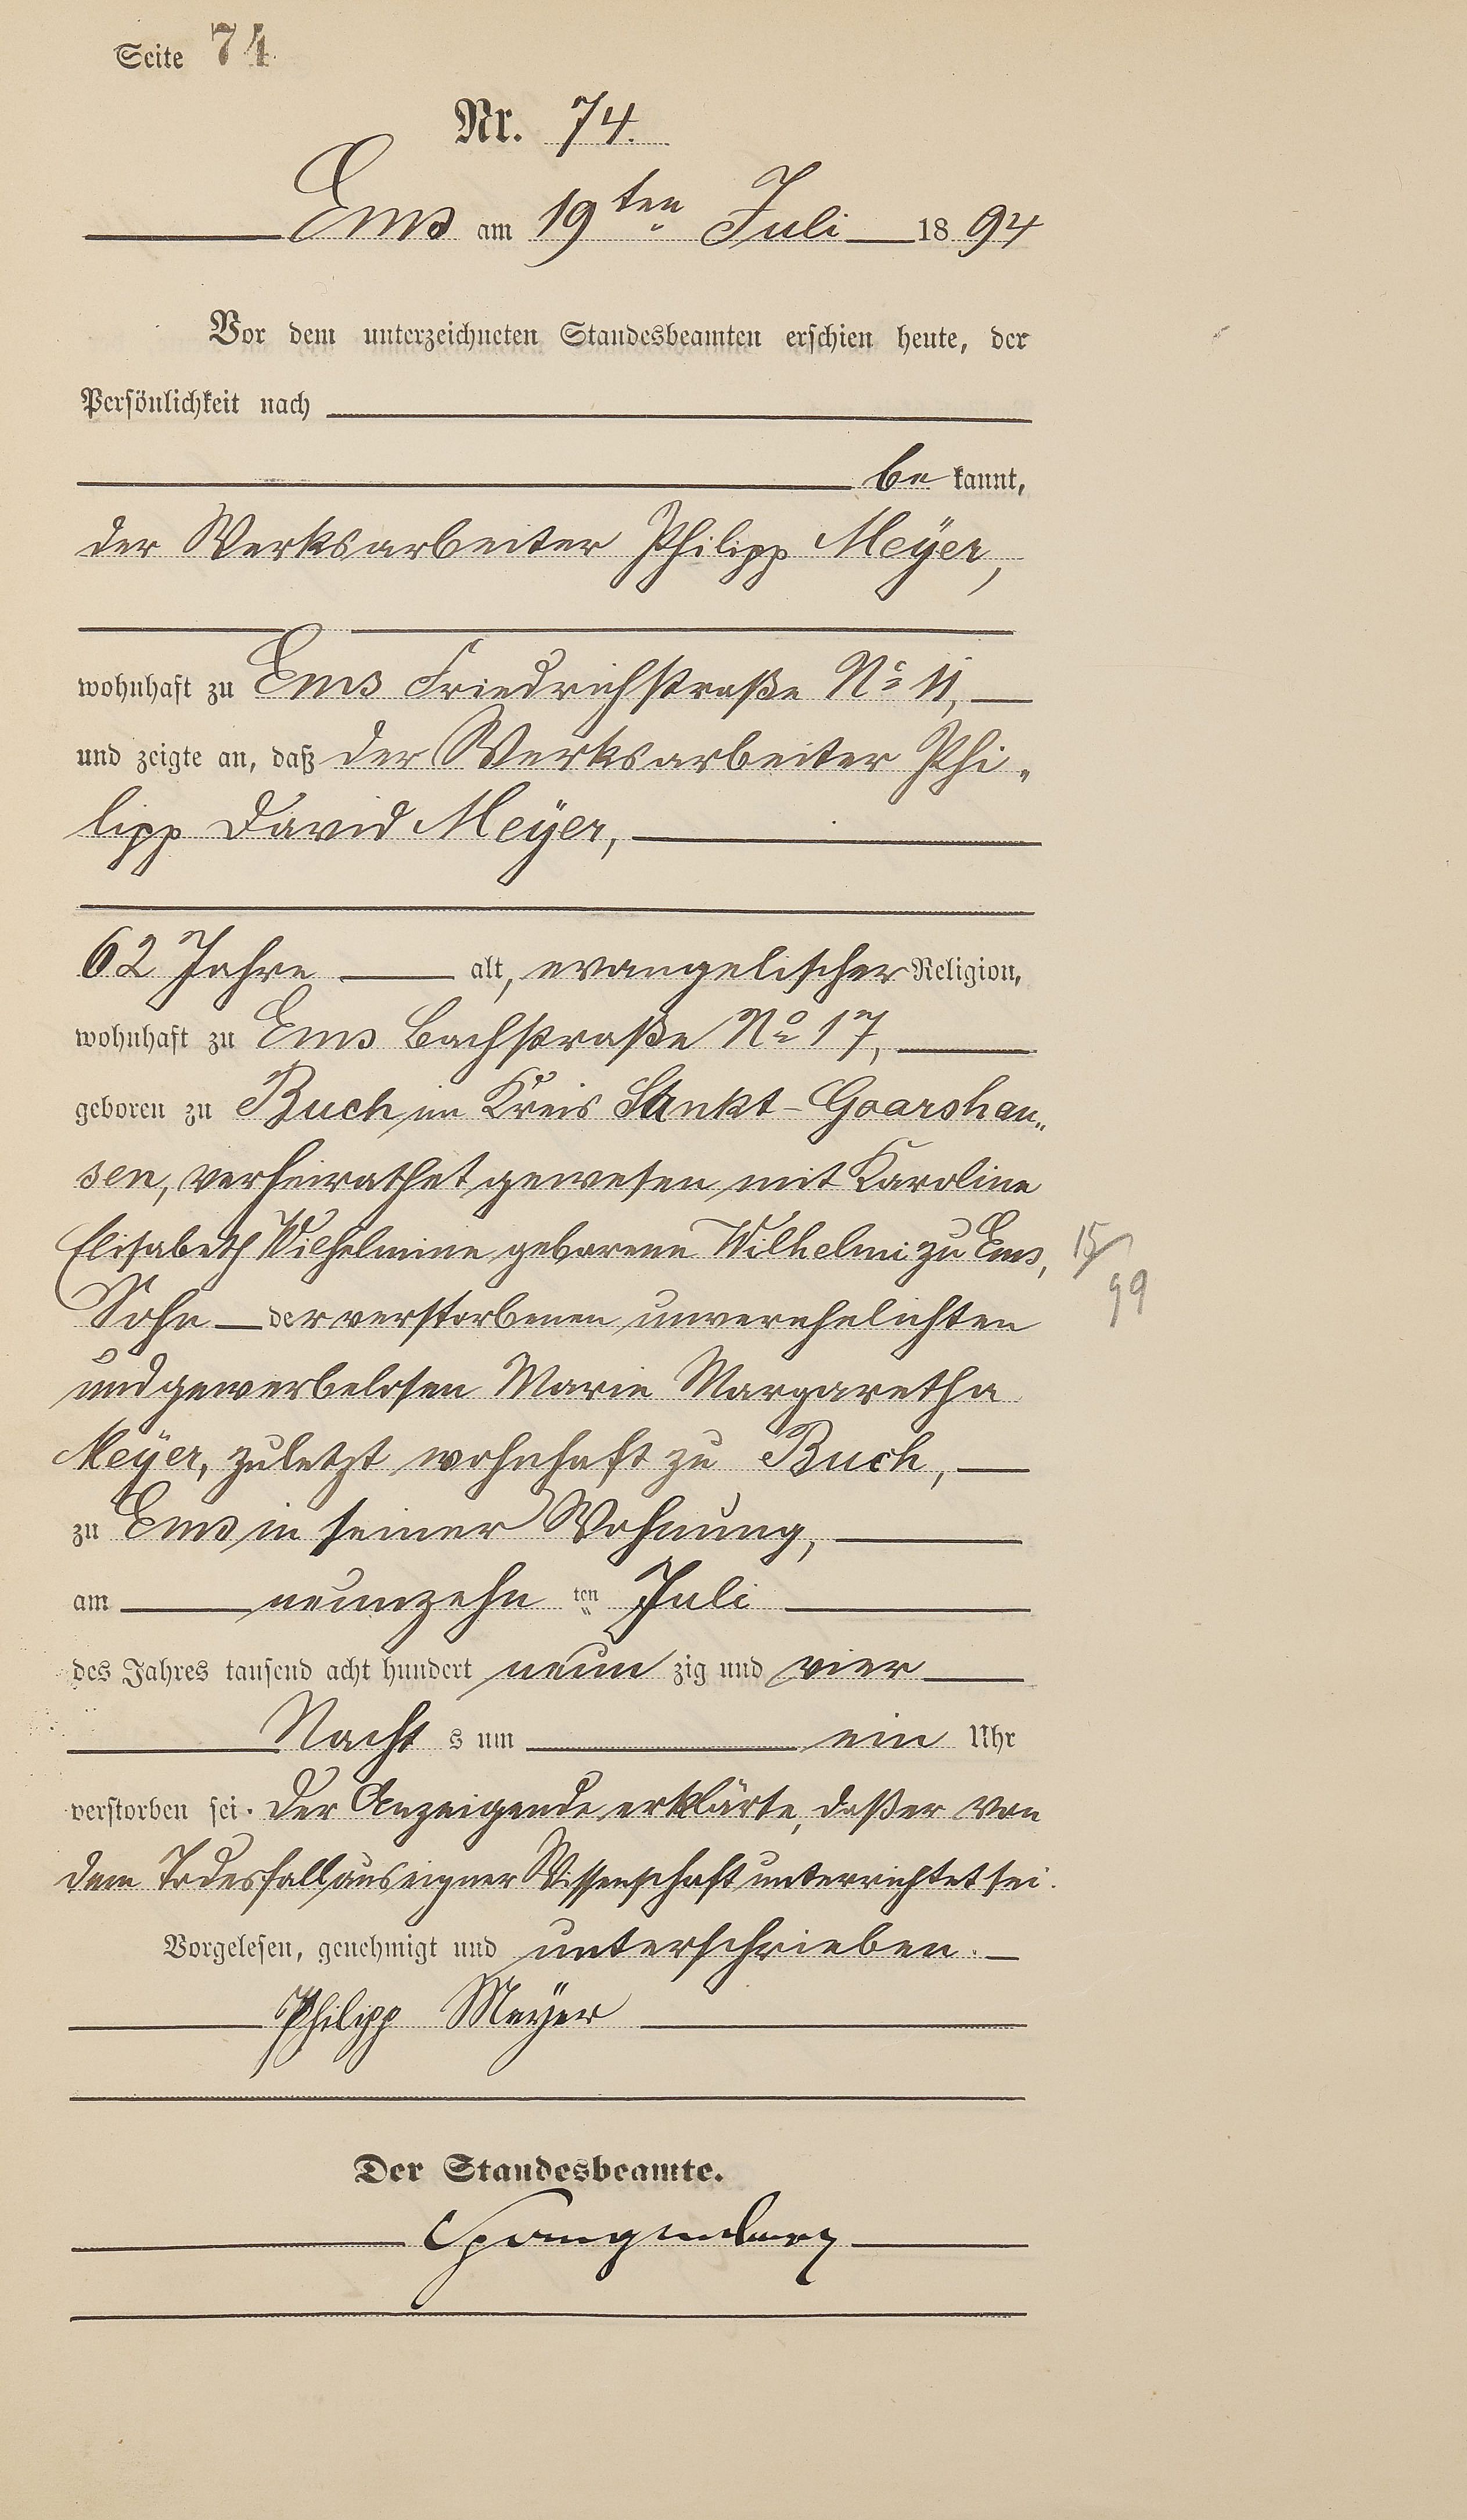 Seite 74
Nr. 74.
Ems am 19ten Juli 1894
Vor dem unterzeichneten Standesbeamten erschien heute, der
Persönlichkeit nach
bekannt,
der Werksarbeiter Philipp Meÿer,
wohnhaft zu Ems Friedrichstraße No 11,
und zeigte an, daß der Werksarbeiter Phi-
lipp David Meÿer,
62 Jahre alt, evangelischer Religion,
wohnhaft zu Ems Bachstraße No 17,
geboren zu Buch im Kreis Sankt-Goarshau-
sen, verheirathet gewesen mit Karoline
Elisabeth Wilhelmine geborene Wilhelmi zu Ems,
15/99
Sohn der verstorbenen unverehelichten
und gewerbelosen Marie Margaretha
Meÿer, zuletzt wohnhaft zu Buch,
zu Ems in seiner Wohnung,
am neunzehn ten Juli
des Jahres tausend acht hundert neunzig und vier
Nachts um ein Uhr
verstorben sei. Der Anzeigende erklärte, daß er von
dem Todesfall aus eigner Wissenschaft unterrichtet sei.
Vorgelesen, genehmigt und unterschrieben.
Philipp Meÿer
Der Standesbeamte.
Spangenberg